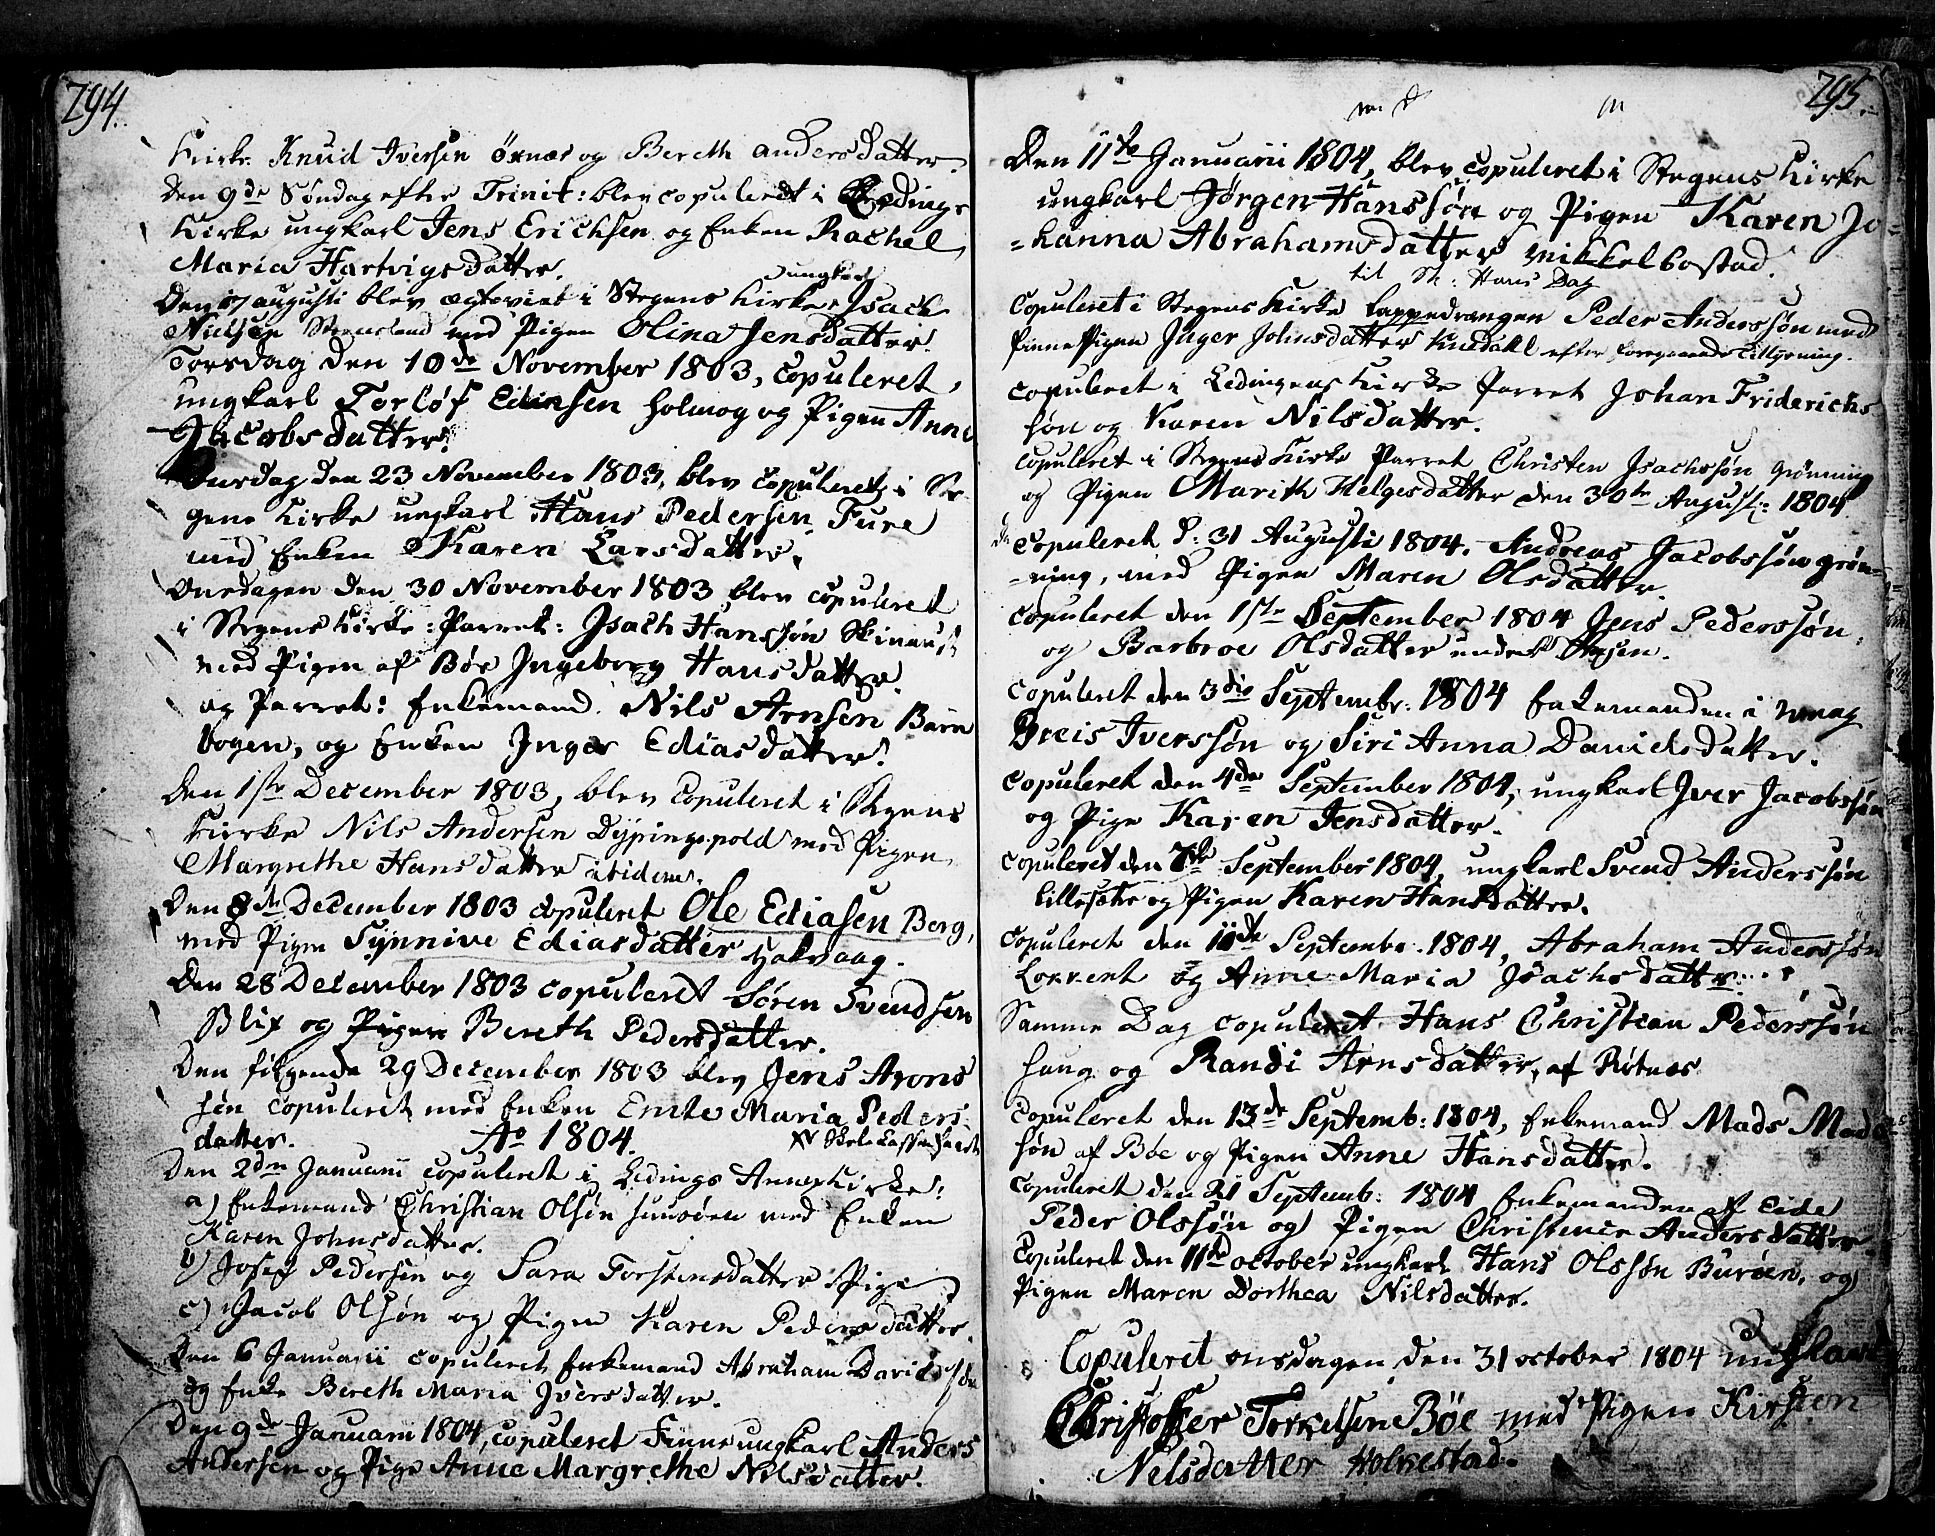 294.
Kirke Knud Iversen Øxnæs og Bereth andersdatter.
Den 9de Søndag efter Trinit: blev copuleret i Lødings
Kirke ungkarl Jens Erichsen og Enken Rachel
Maria Hartvigsdatter.
ungkarl
Den 17 augusti blev ægteviet i Stegens Kirke Isach
Nielsen med Pigen Olina Jensdatter.
Torsdag den 10de November 1803, copuleret,
ungkarl Torløf Edisen Holmog og Pigen Anne
Jacobsdatter.
Onsdag den 23 November 1803, blev copuleret i Ste-
gens Kirke ungkarl Hans Pedersen Fure
med Enken Karen Larsdatter.
Onsdagen den 30 November 1803 blev copuleret
i Stegens Kirke: Parret: Isach Hanssøn
med Pigen af Bøe Ingeborg Hansdatter.
og Parret: Enkemand. Nils Arnsen Barn
vogen, og Enken Inger Ediasdatter.
Den 1ste December 1803, blev Copuleret i Stegens
Kirke Nils Andersen Dypingspold med Pigen
Margrethe Hansdatter ibidem.
Den 8de December 1803 copuleret Ole Ediasen Berg,
med Pigen Synnive Ediasdatter Hakvaag.
Den 28 December 1803 copuleret Søren Svendsen
Blix og Pigen Bereth Pedersdatter.
Den følgende 29 December 1803 blev Jens Arons
søn copuleret med Enken Emte Maria Peders-
datter. Ao 1804.
Den 2den Januarii copuleret i Lødings AnnexKirke:
a) Enkemand Christian Olsøn med Enken
Karen Johnsdatter.
b) Josef Pedersøn og Sara Torstensdatter Pige
c) Jacob Olsøn og Pigen Karen Pedersdatter.
Den 6 Januarii copuleret Enkemand Abraham Davidsøn
og Enke Bereth Maria Iversdatter.
Den 9de Januarii 1804, copuleret Finneungkarl Anders
Andersen og Pige Anne Margrethe Nilsdatter.
295.
Den 11te Januarii 1804, blev copuleret i Stegens Kirke
ungkarl Jørgen Hanssøn og Pigen Karen Jo-
-hanna Abrahamsdatter Mikkelbostad.
til St: Hans Dag
Copuleret i Stegens Kirke Lappedrængen Peder Anderssøn med
FinnePigen Inger Johnsdatter efter foregaaende Tillysning.
copuleret i Lødingens Kirke Parret Johan Friderichs
søn og Karen Nilsdatter.
Copuleret i Stegens Kirke Parret Christen Isachssøn Grønning
og Pigen Marith Helgesdatter den 30te August: 1804
copuleret d: 31 Augusti 1804. Andreas Jacobssøn grøn-
-ning, med Pigen Maren Olsdatter.
Copuleret den 1ste September 1804 Jens Pederssøn,
og Barbroe Olsdatter
Copuleret den 3die Septembr: 1804 Enkemanden i
Breis Iverssøn og Siri Anna Danielsdatter.
Copuleret den 4de September 1804, ungkarl Iver Jacobssøn
og Pige Karen Jensdatter.
Copuleret den 7de September 1804, ungkarl Svend Anderssøn
Lillesætre og Pigen Karen Hansdatter.
Copuleret den 11te Septembr. 1804, Abraham Anderssøn
og Anne Maria Isachsdatter.
Samme Dag copuleret Hans Christean Pederssøn
Haug og Randi Arnsdatter, af Røtnæs
Copuleret den 13de Septemb: 1804, Enkemand Mads Mads
søn af Bøe og Pigen Anne Hansdatter.
Copuleret den 21 Septemb: 1804 Enkemanden af Eide
Peder Olssøn og Pigen Christence Andersdatter.
Copuleret den 11te october ungkarl Hans Olssøn Burøen, og
Pigen Maren Dorthea Nilsdatter.
Copuleret onsdagen den 31 october 1804 ungkarl
Christoffer Torkelsen Bøe med Pigen Kirsten
Nelsdatter Holkestad.